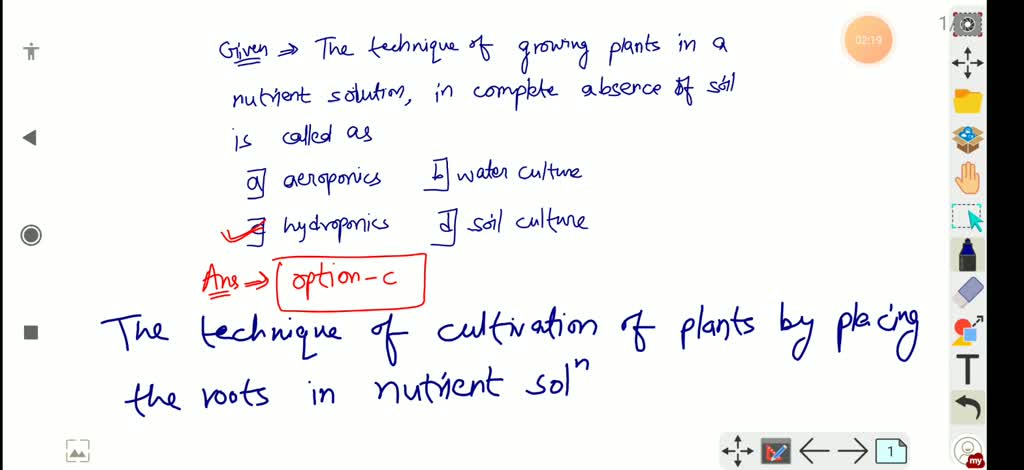 1/
02:19
Given ⇒ The technique of growing plants in a
nutrient solution, in complete absence of soil
is called as
a] aeroponics b] water culture
c] hydroponics d] soil culture
Ans ⇒ option-c
The technique of cultivation of plants by placing
the roots in nutrient solⁿ
T
1
my